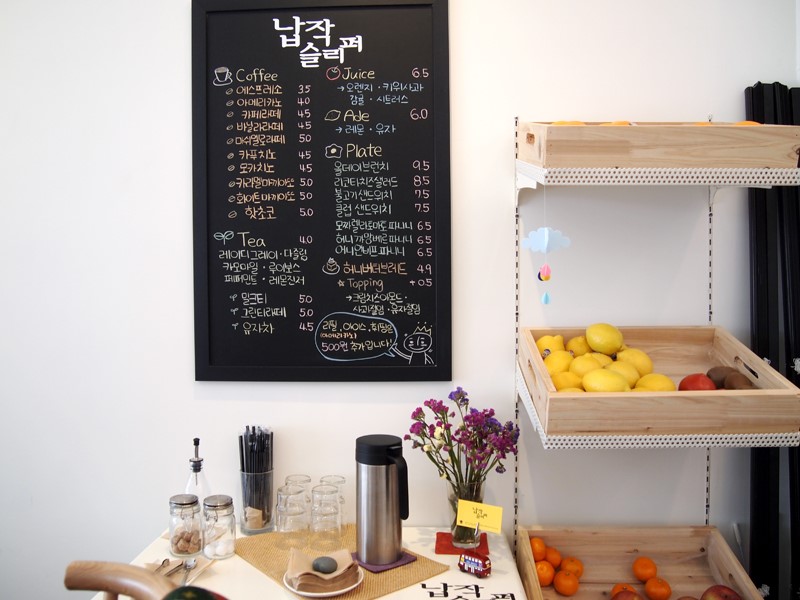 납작
슬리퍼
Coffee
에스프레소 3.5
아메리카노 4.0
카페라떼 4.5
바닐라라떼 4.5
마쉬멜로라떼 5.0
카푸치노 4.5
모카치노 4.5
카라멜마끼아또 5.0
화이트마끼아또 5.0
핫초코 5.0
Tea 4.0
레이디그레이·다즐링
카모마일·루이보스
페퍼민트·레몬진저
밀크티 5.0
그린티라떼 5.0
유자차 4.5
Juice 6.5
→오렌지·키위사과
감귤·시트러스
Ade 6.0
→레몬·유자
Plate
올데이브런치 9.5
리코타치즈샐러드 8.5
불고기샌드위치 7.5
클럽샌드위치 7.5
모찌렐라토마토파니니 6.5
허니까망베르파니니 6.5
어니언비프파니니 6.5
허니버터브레드 4.9
Topping +0.5
→크림치즈·아몬드·
사과절임·유자절임
리필, 아이스, 휘핑은
(아메리카노)
500원 추가입니다!
납작
슬리퍼
납작
슬리퍼